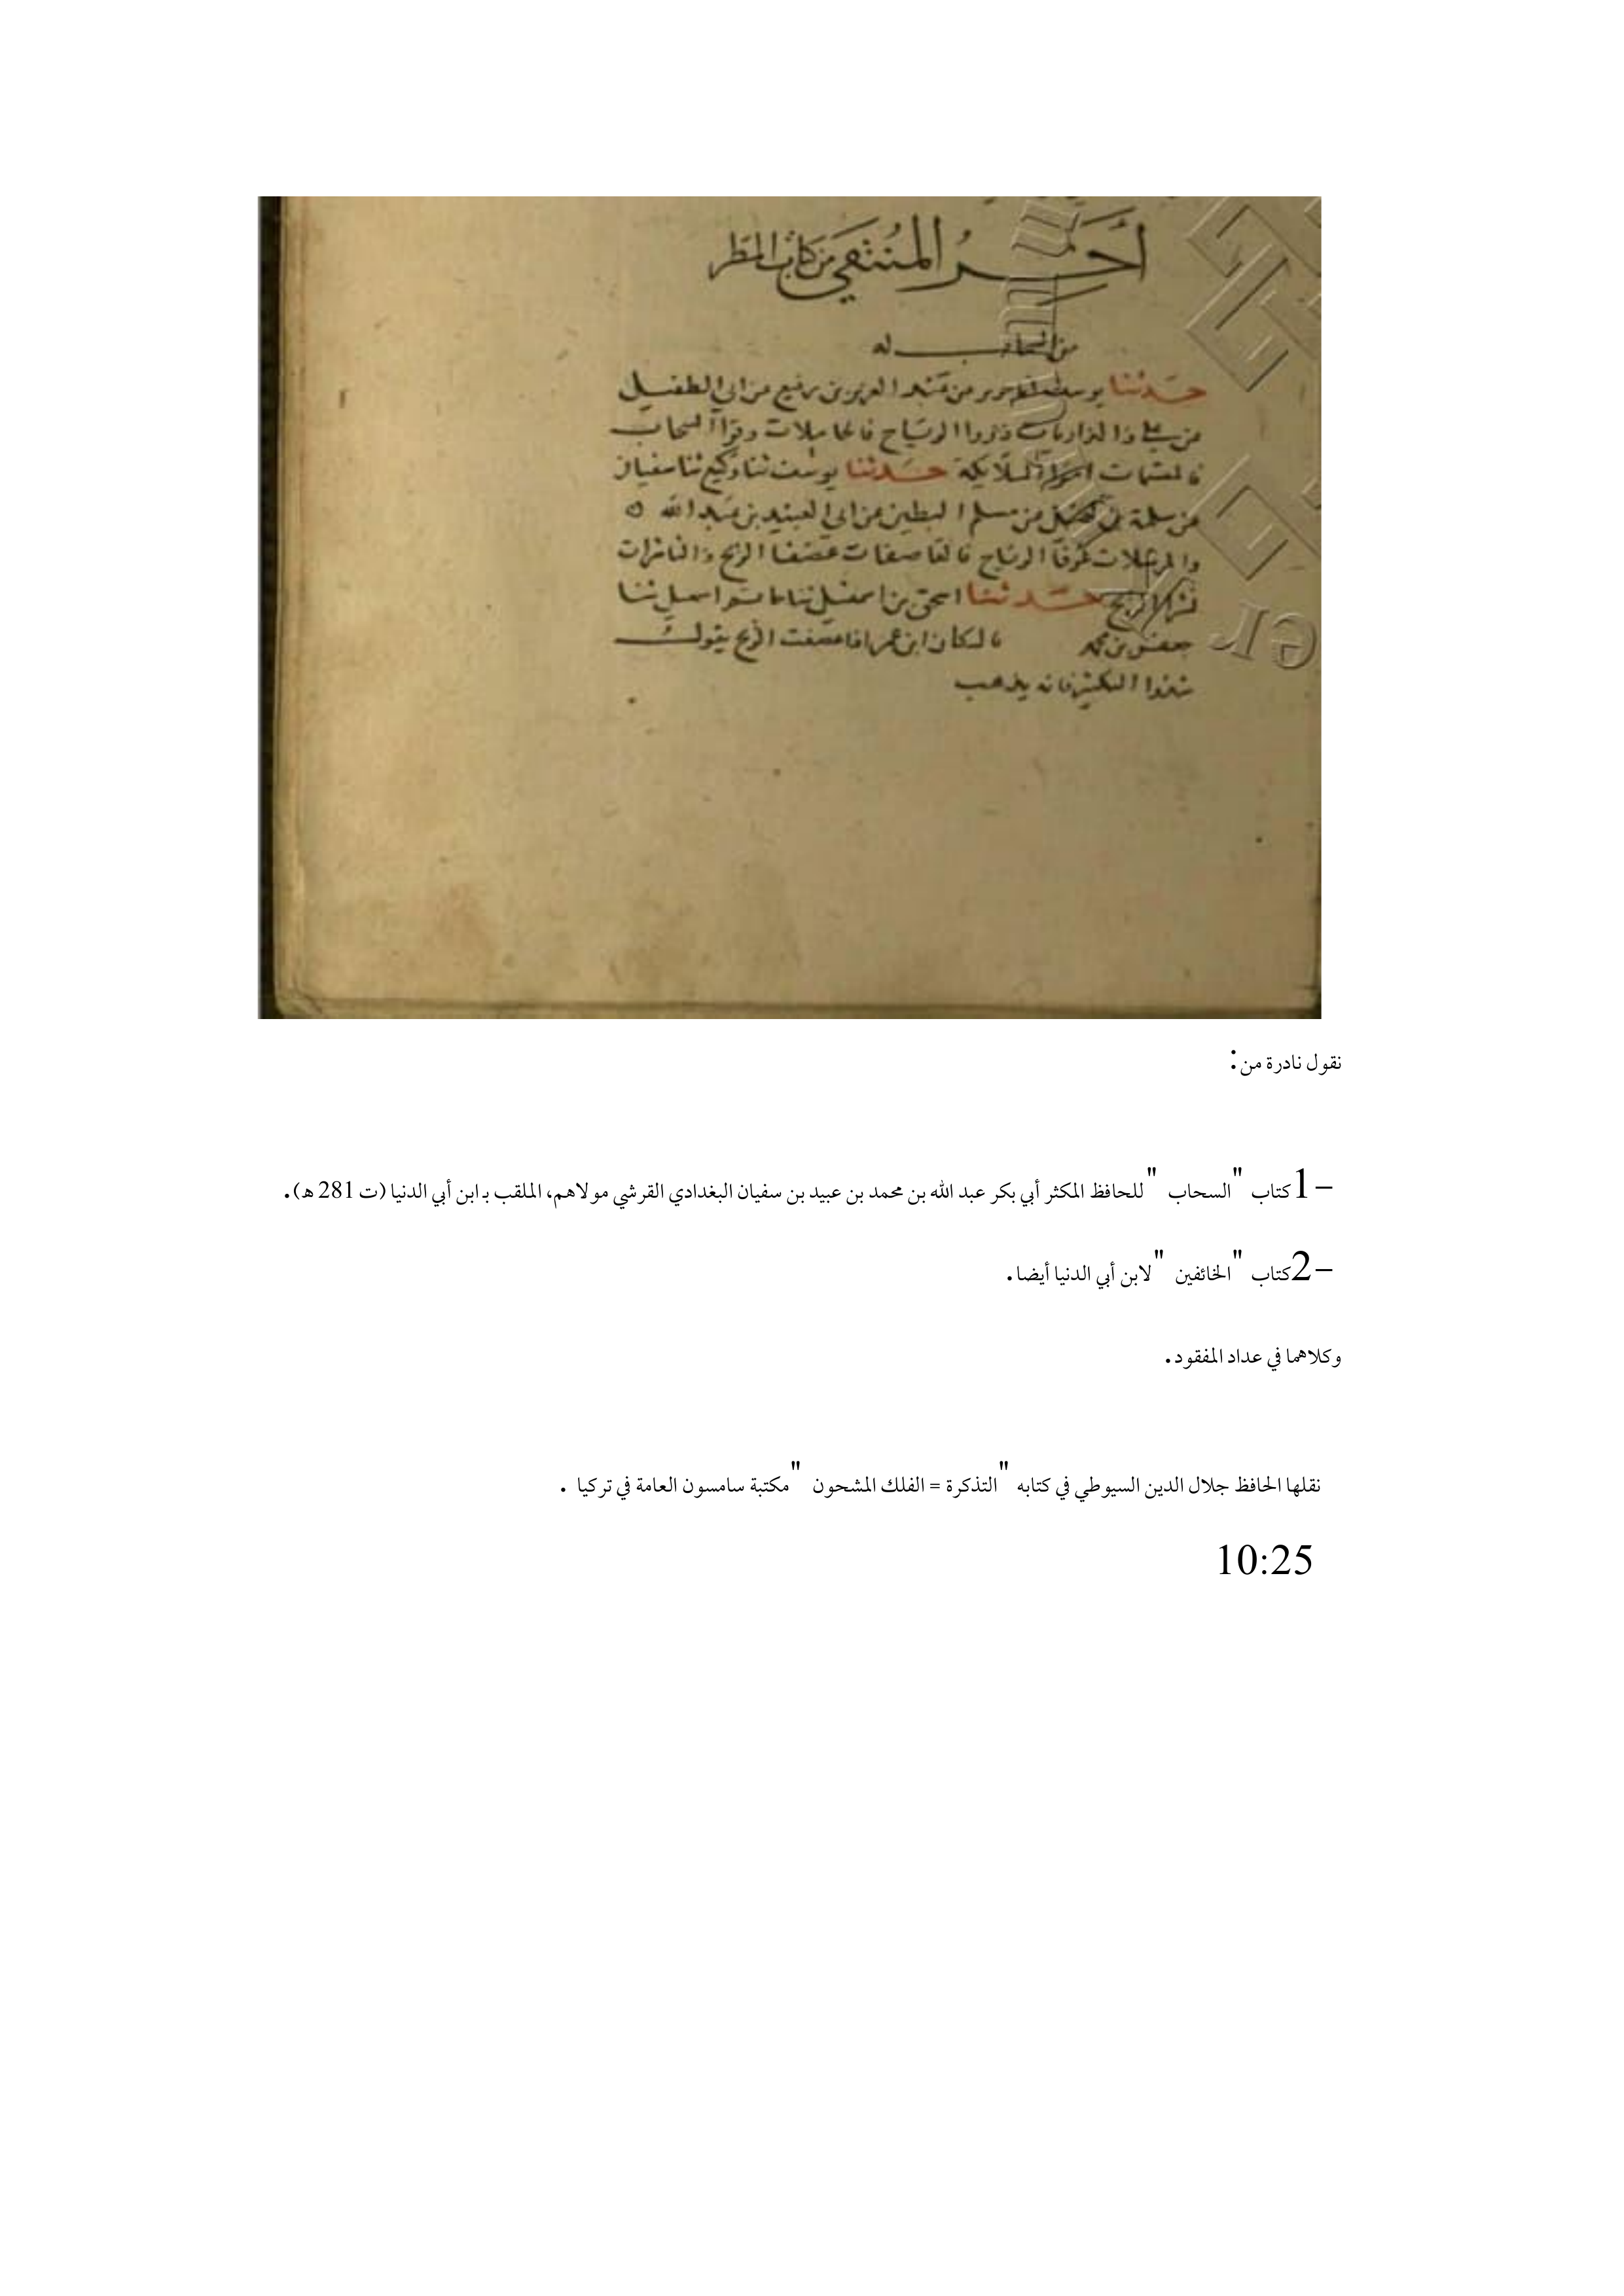 آخر المنتقى من كتاب المطر
من السحاب له
حدثنا يوسف جرير عن عبد العزيز بن رفيع عن ابي الطفيل
عن علي والذاريات ذروا الرياح فالحاملات وقرا السحاب
فالمقسمات امرا الملايكة حدثنا يوسف ثنا وكيع ثنا سفيان
عن سلمة بن كهيل عن مسلم البطين عن ابي العبيد بن عبد الله ه
والمرسلات عرفا الرياح فالعاصفات عصفا الريح والناشرات
نشرا الريح حدثنا اسحق بن اسمعيل ثنا اسمعيل ثنا
جعفر بن محمد قال كان ابن عمر اذا عصفت الريح يقول
شدوا التكبير فانه يذهب
نقول نادرة من:
1- كتاب "السحاب" للحافظ المكثر أبي بكر عبد الله بن محمد بن عبيد بن سفيان البغدادي القرشي مولاهم، الملقب بـ ابن أبي الدنيا (ت 281 هـ).
2- كتاب "الخائفين" لابن أبي الدنيا أيضا.
وكلاهما في عداد المفقود.
نقلها الحافظ جلال الدين السيوطي في كتابه "التذكرة = الفلك المشحون" مكتبة سامسون العامة في تركيا .
10:25